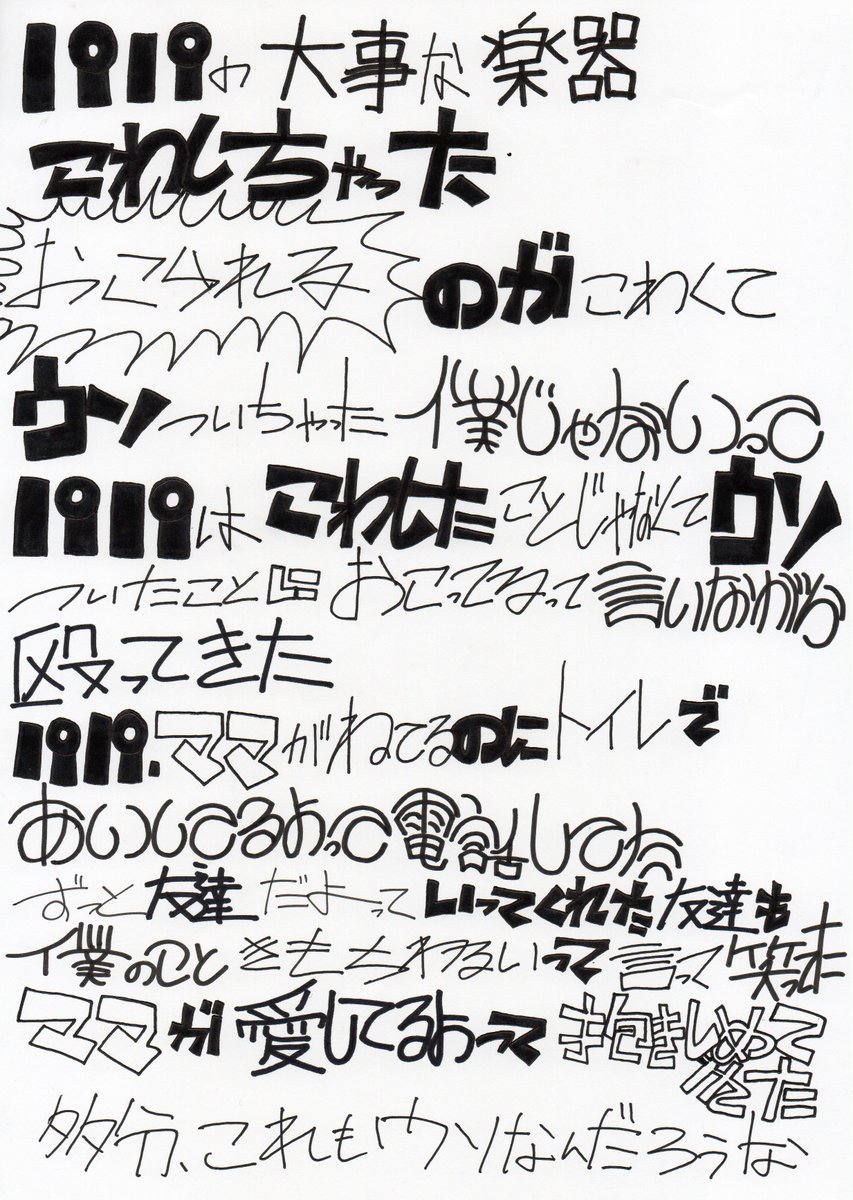 パパの大事な楽器
こわしちゃった
おこられるのがこわくて
ウソついちゃった僕じゃないって
パパはこわしたことじゃなくてウソ
ついたことにおこってるって言いながら
殴ってきた
パパ、ママがねてるのにトイレで
あいしてるよって電話してた
ずっと友達だよっていってくれた友達も
僕のこときもちわるいって言って笑った
ママが愛してるよって抱きしめて
くれた
多分、これもウソなんだろうな